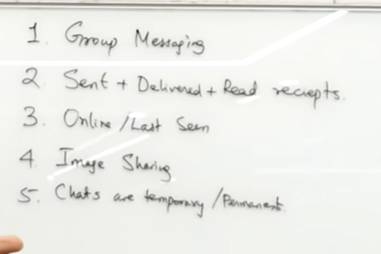 1. Group Messaging
2 Sent + Delivered + Read reciepts.
3. Online / Last Seen
4 Image Sharing
5. Chats are temporary / Permanent.